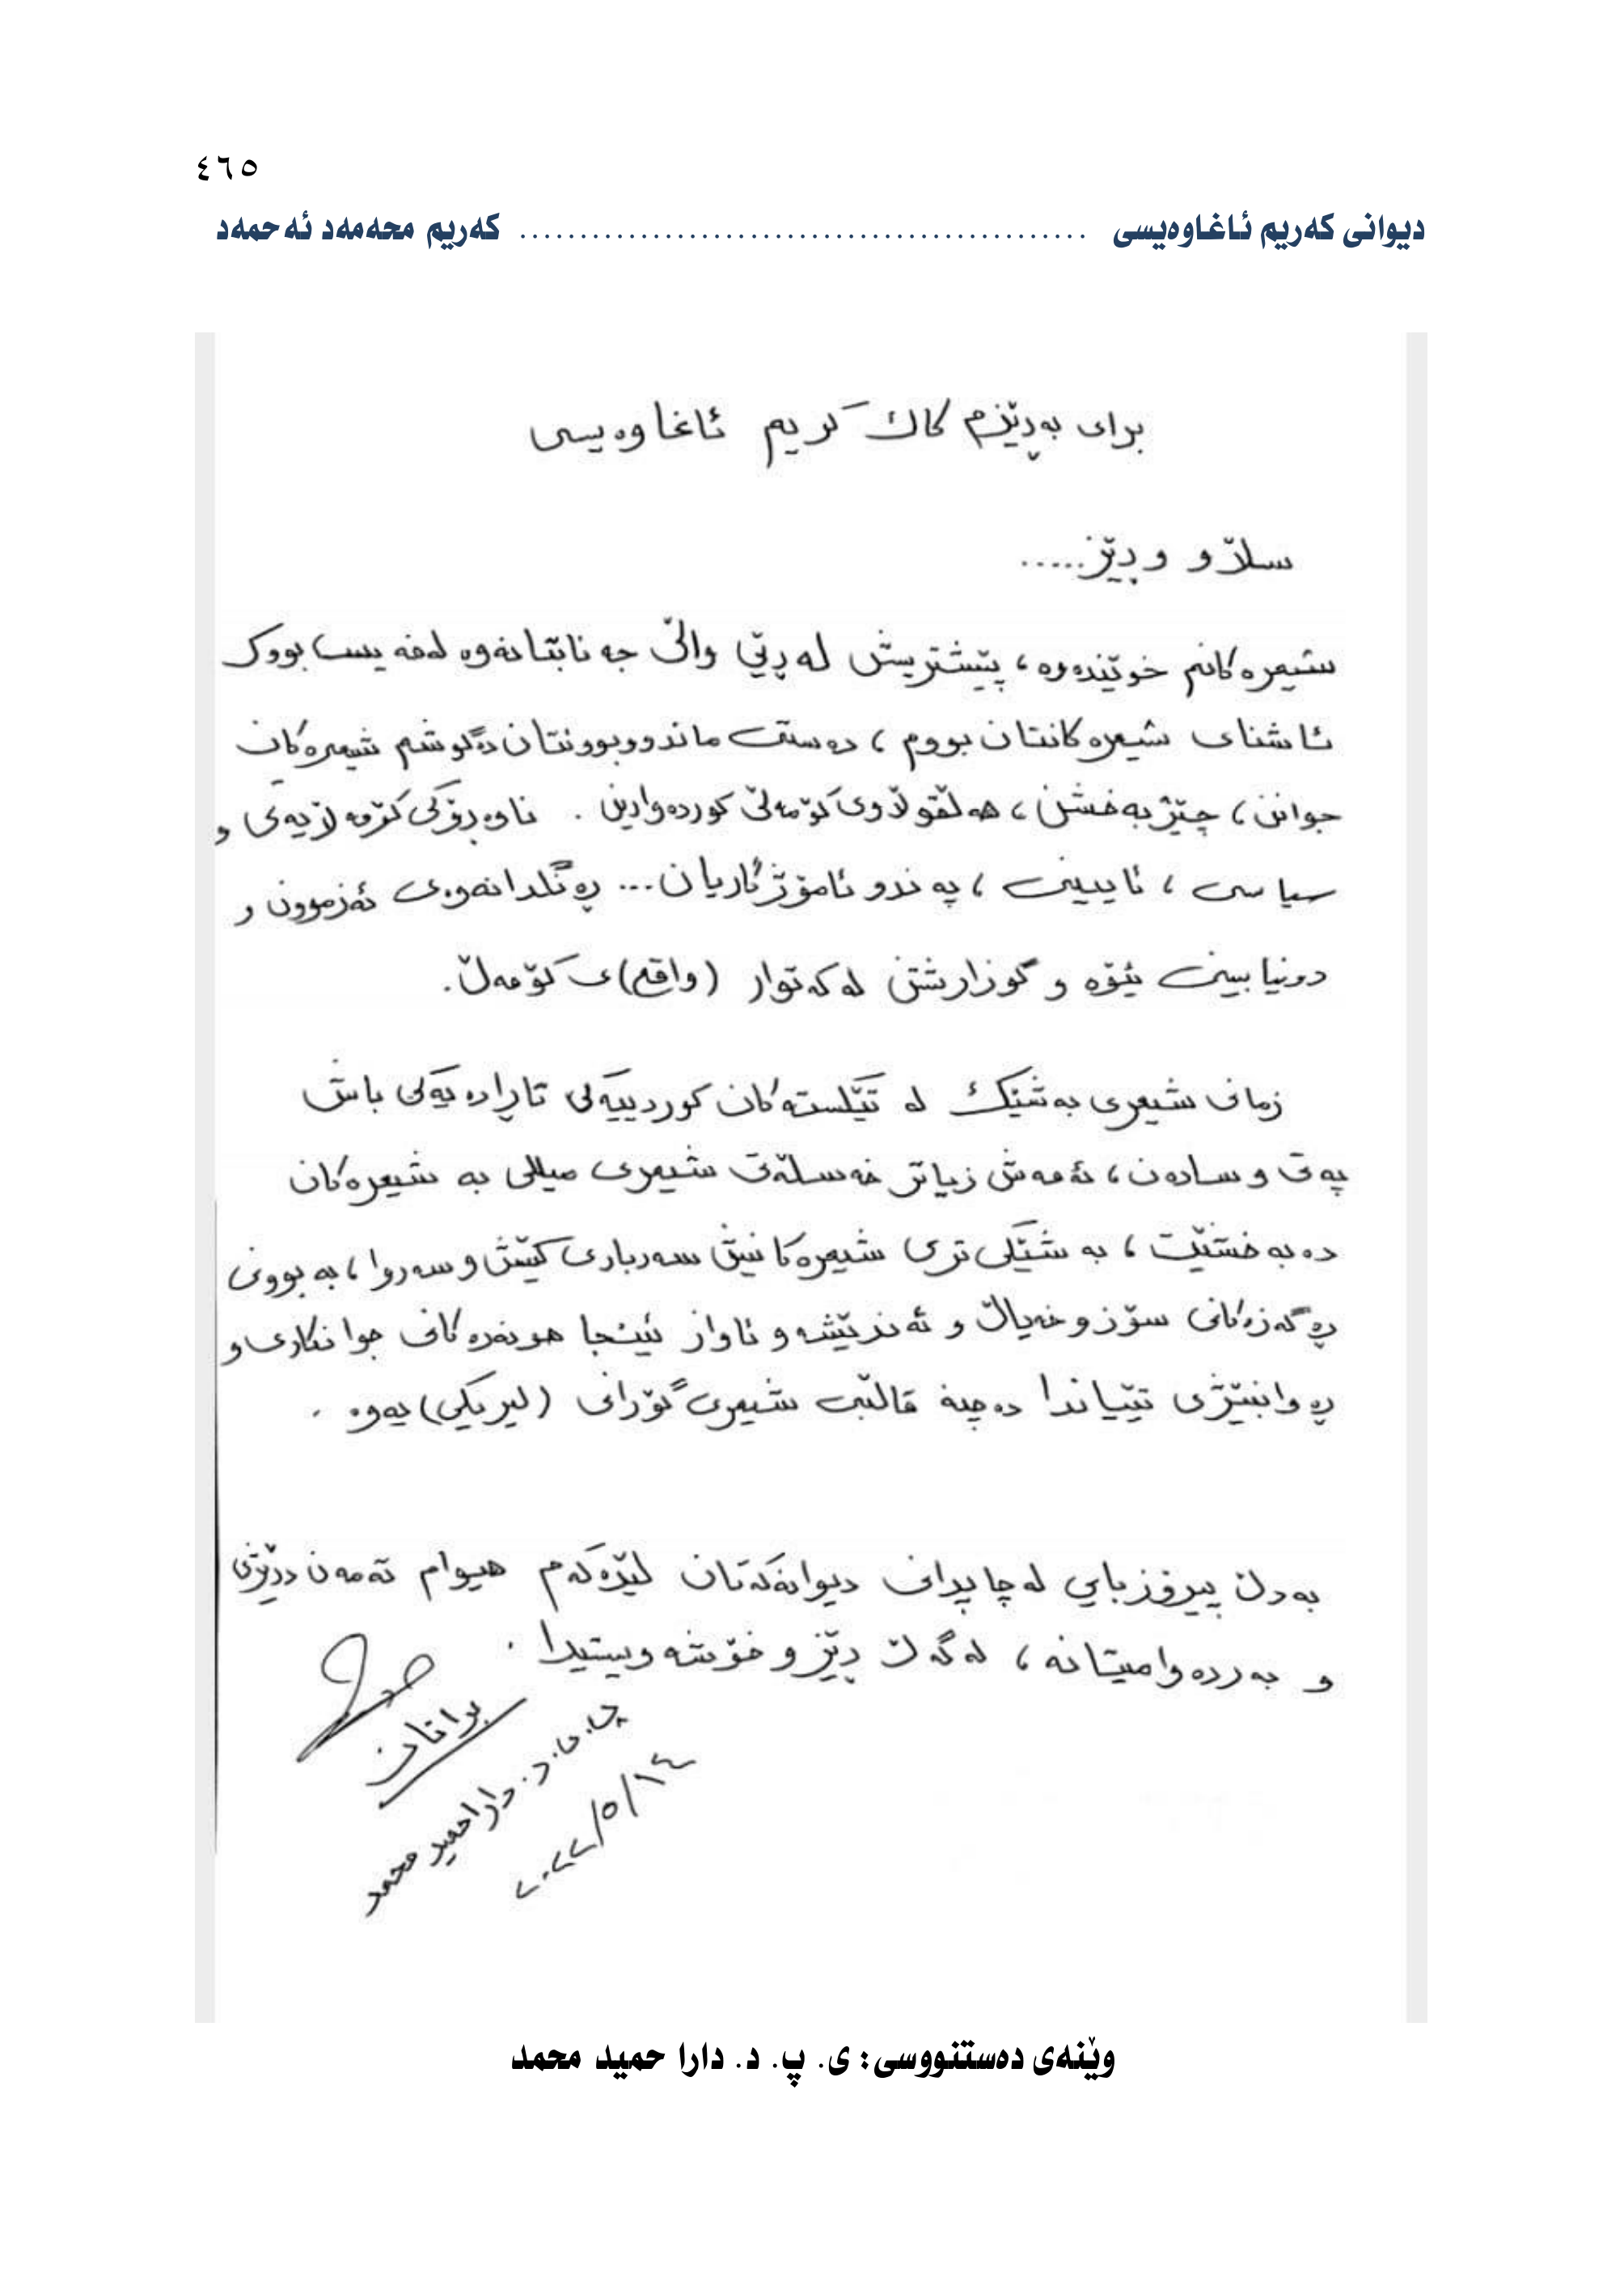 ٤٦٥
دیوانی كەریم ئاغاوەیسی ............................................... كەریم محەمەد ئەحمەد
برای بەڕێزم كاك كریم ئاغاوەیسی
سڵاو و ڕێز.....
شیعرەكانم خوێندەوە، پێشتریش لە ڕێی واڵی جەنابتانەوە لەفەیسبووك
ئاشنای شیعرەكانتان بووم، دەستی ماندووبوونتان دەگوشم شیعرەكان
جوانن، چێژبەخشن، هەڵقوڵاوی كۆمەڵی كوردەوارین. ناوەڕۆكی كۆمەڵایەی و
سیاسی، ئایینی، پەندو ئامۆژگاریان... ڕەنگدانەوەی ئەزموون و
دونیابینی ئێوە و گوزارشتن لەكەتوار (واقع)ی كۆمەڵ.
زمانی شیعری بەشێك لە تێكستەكان كوردییەكی تاڕادەیەكی باش
پەتی و سادەن، ئەمەش زیاتر خەسڵەتی شیعری میللی بە شیعرەكان
دەبەخشێت، بەشێكی تری شیعرەكانیش سەرباری كێش و سەروا، بەبوونی
ڕەگەزەكانی سۆزوخەیاڵ و ئەندێشەو ئاواز ئینجا هونەرەكانی جوانكاری و
ڕەوانبێژی تێیاندا دەچنە قاڵبی شیعری گۆرانی (لیریكی)یەوە.
بەدڵ پیرۆزبایی لەچاپدانی دیوانەكەتان لێدەكەم هیوام تەمەن درێژی
و بەردەوامیتانە، لەگەڵ ڕێز و خۆشەویستیدا.
براتان
پ.ی.د. دارا حمید محمد
٢٠٢٢/٥/١٤
وێنەی دەستنووسی: ی. پ. د. دارا حمید محمد